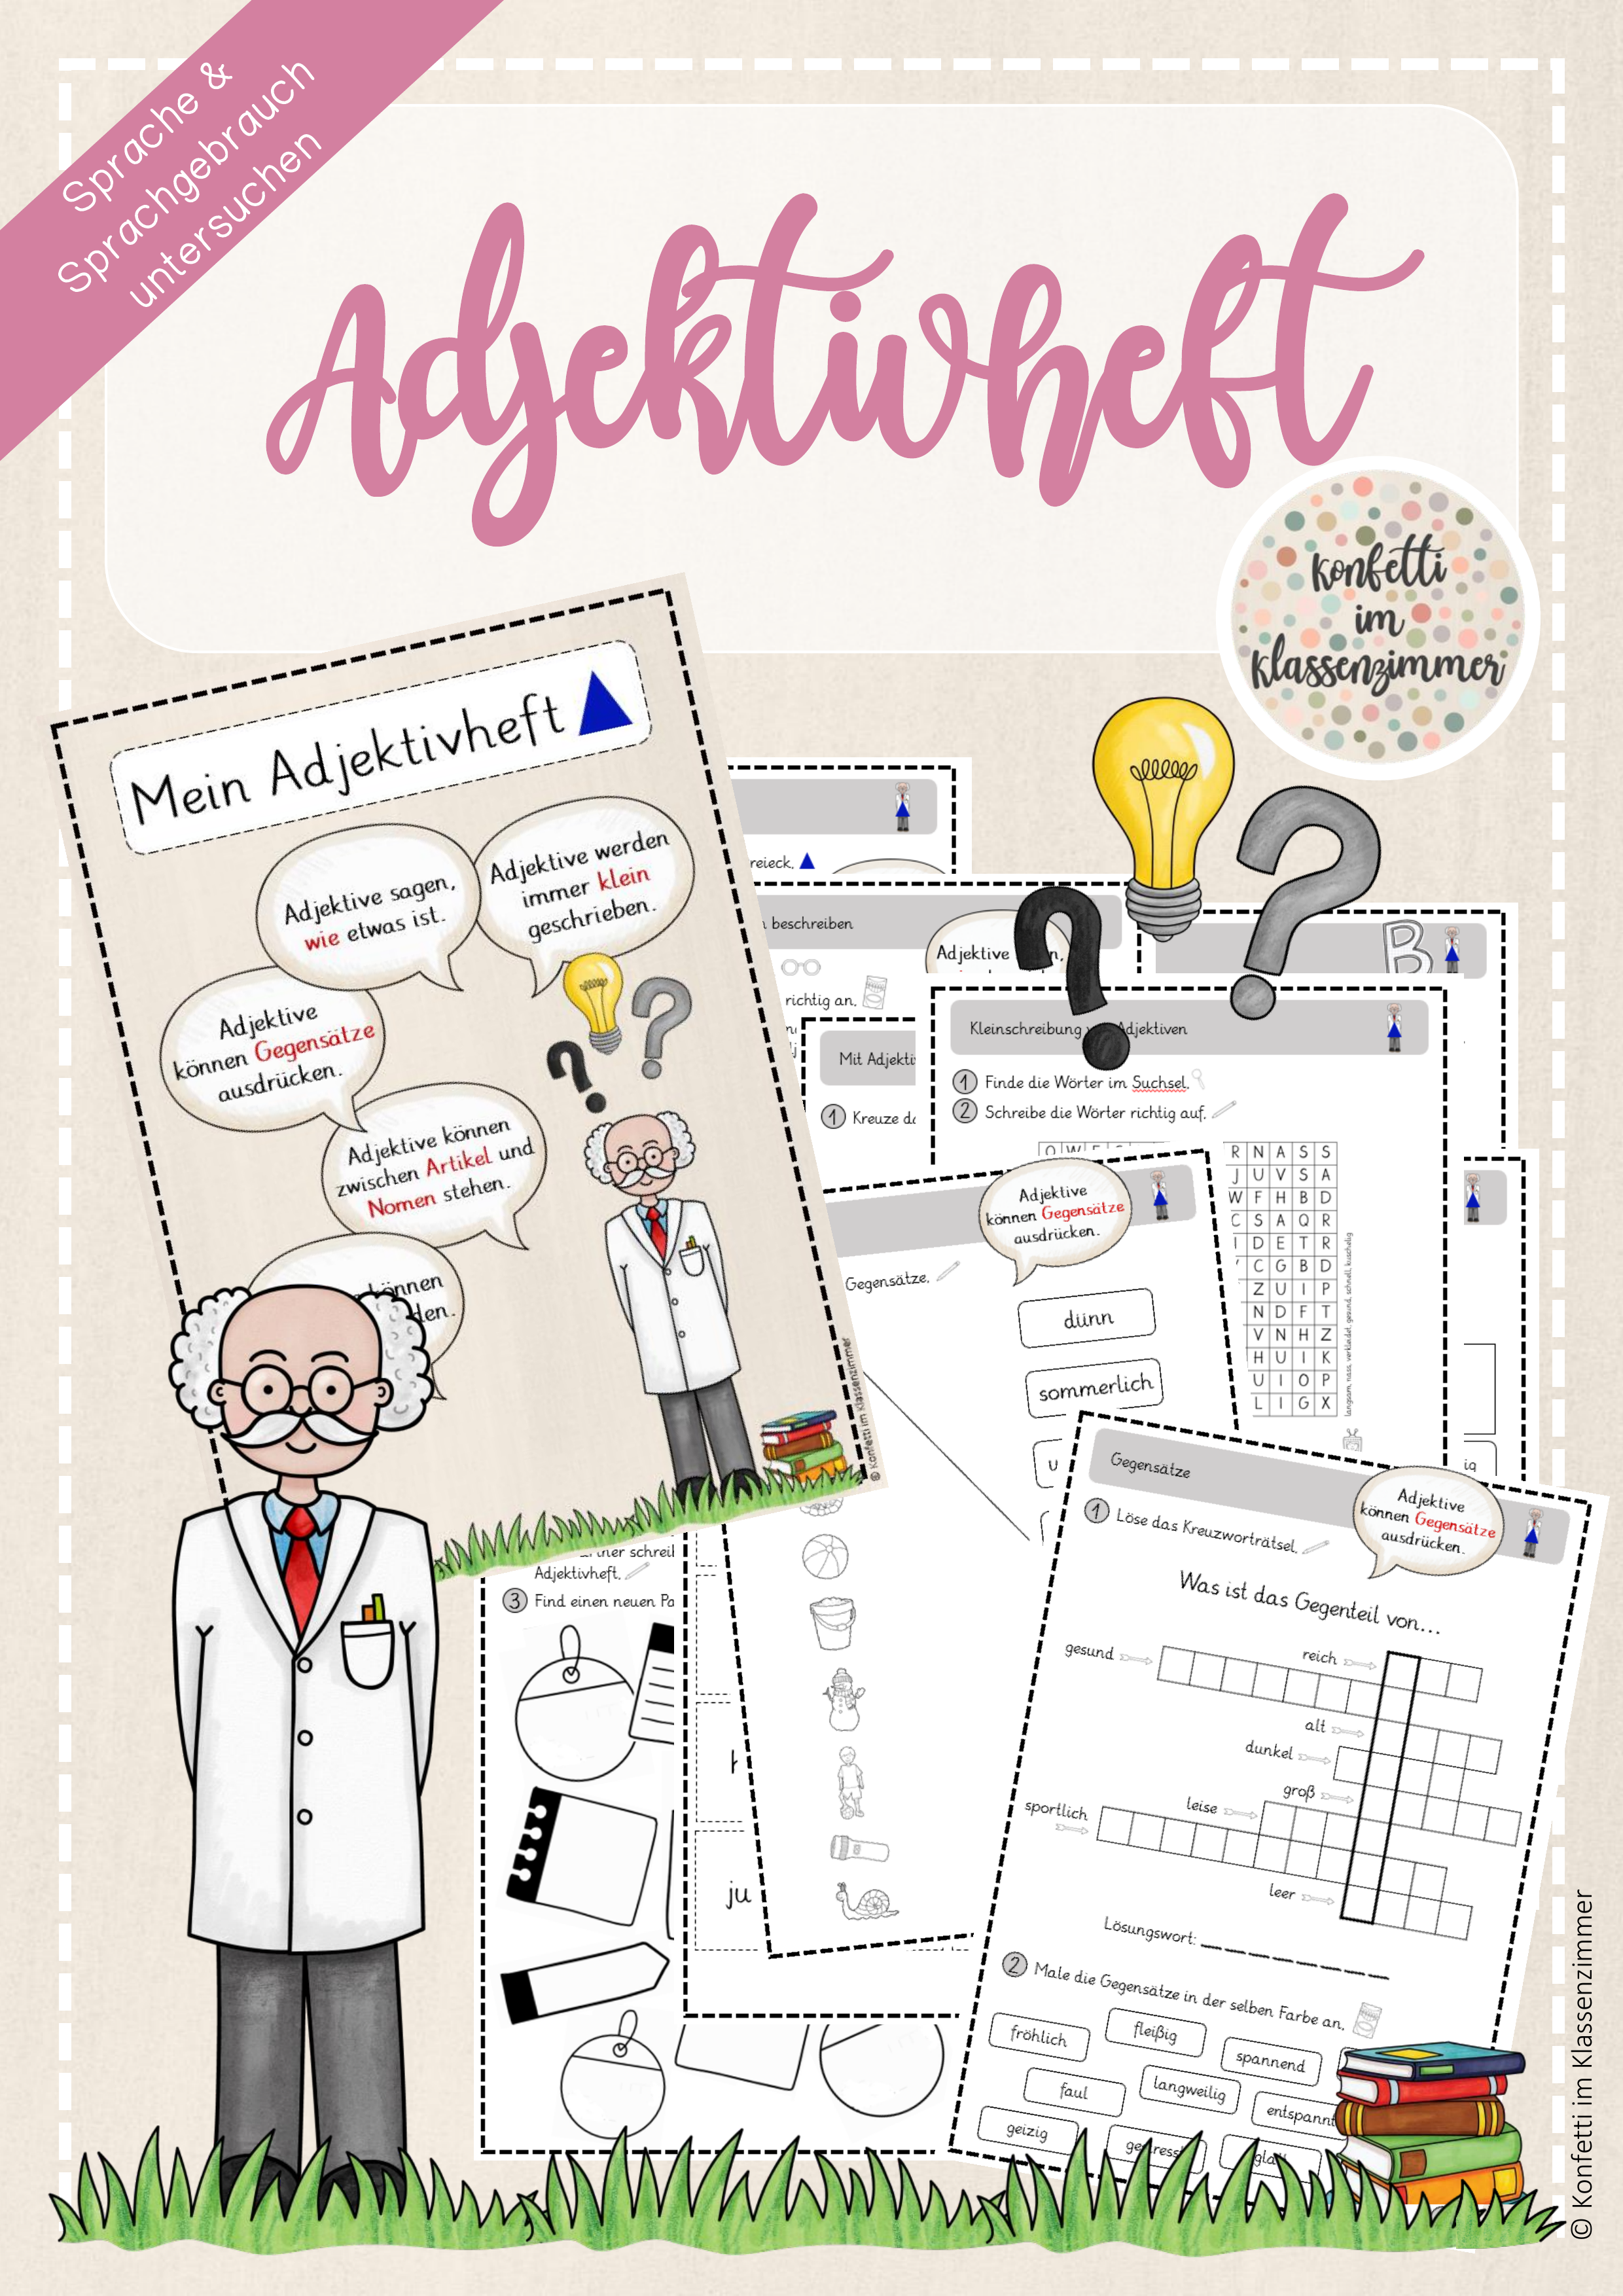 Sprache &
Sprachgebrauch
untersuchen
Adjektivheft
konfetti
im
klassenzimmer
Mein Adjektivheft
Adjektive sagen,
wie etwas ist.
Adjektive werden
immer klein
geschrieben.
Adjektive
können Gegensätze
ausdrücken.
Adjektive können
zwischen Artikel und
Nomen stehen.
können
den.
© Konfetti im Klassenzimmer
reieck.
beschreiben
Adjektive
richtig an.
Mit Adjekti
1 Kreuze da
B
Kleinschreibung Adjektiven
1 Finde die Wörter im Suchsel.
2 Schreibe die Wörter richtig auf.
R N A S S
J U V S A
W F H B D
C S A Q R
I D E T R
C G B D
Z U I P
N D F T
V N H Z
H U I K
U I O P
L I G X
langsam, nass, verkleidet, gesund, schnell, kuschelig
Adjektive
können Gegensätze
ausdrücken.
Gegensätze.
dünn
sommerlich
u
ig
schreib
Adjektivheft.
3 Find einen neuen Pa
ju
Gegensätze
Adjektive
können Gegensätze
ausdrücken.
1 Löse das Kreuzworträtsel.
Was ist das Gegenteil von...
gesund
reich
alt
dunkel
groß
leise
sportlich
leer
Lösungswort:
2 Male die Gegensätze in der selben Farbe an.
fröhlich
fleißig
spannend
faul
langweilig
entspannt
geizig
© Konfetti im Klassenzimmer